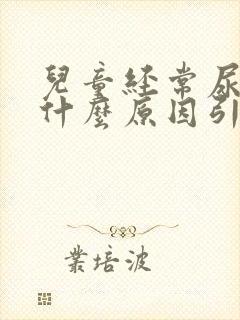 兒童経常尿
什麼原因引
業培波